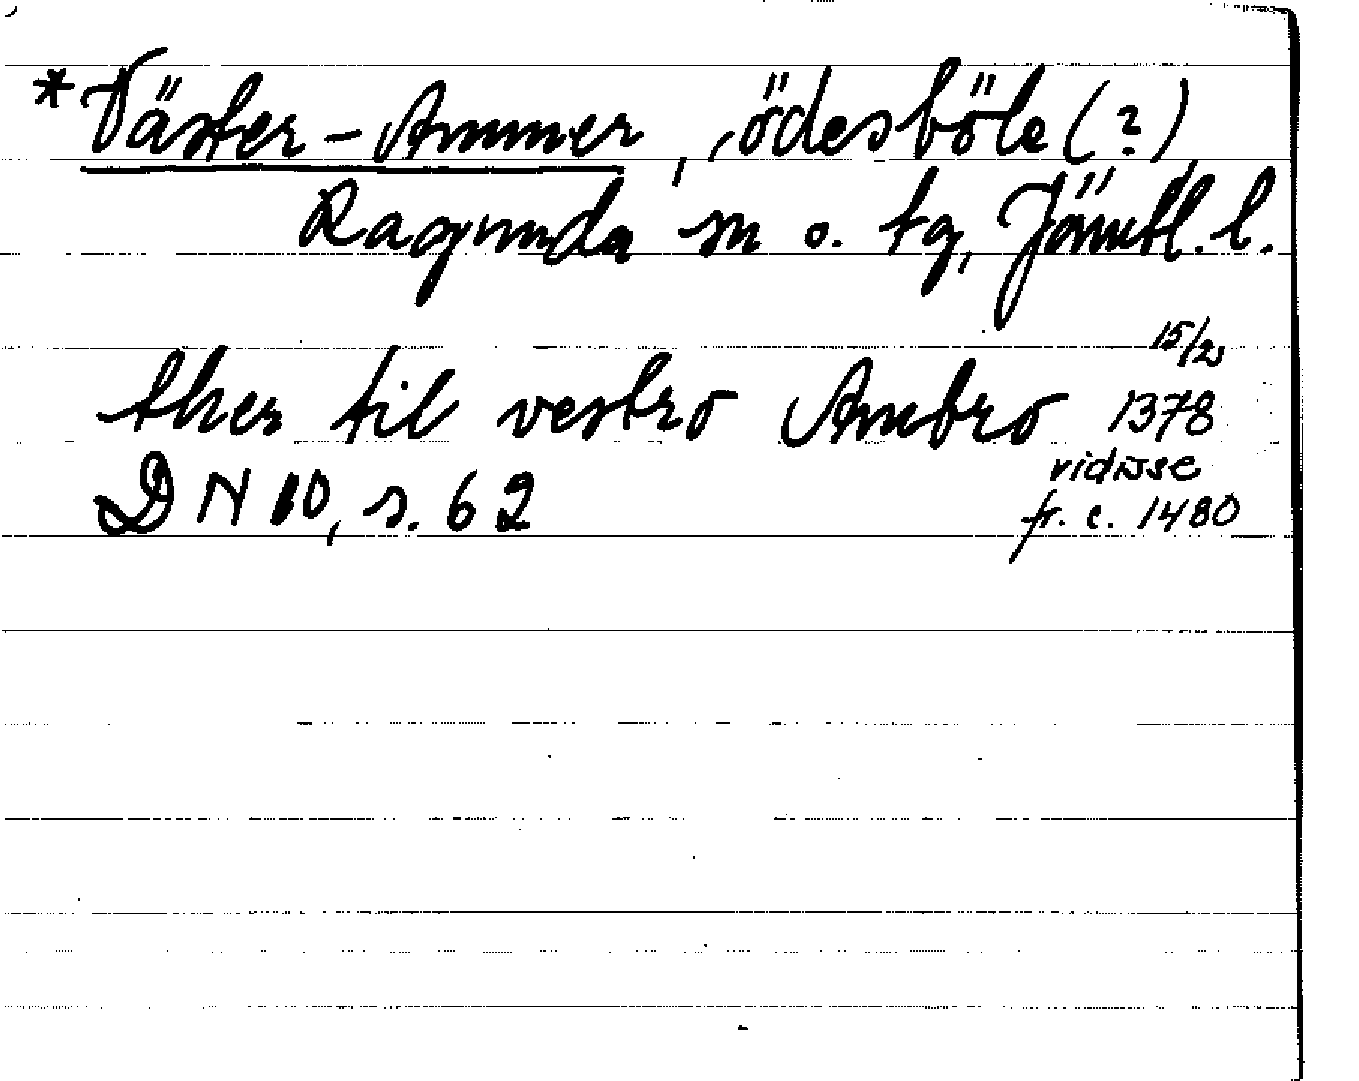 *Väster-Ammer, ödesböle (?)
Ragunda sn o. tg, Jämtl. l.
15/2
ther til vestro Ambro 1378
vidisse
DN 10, s. 62 fr. c. 1480